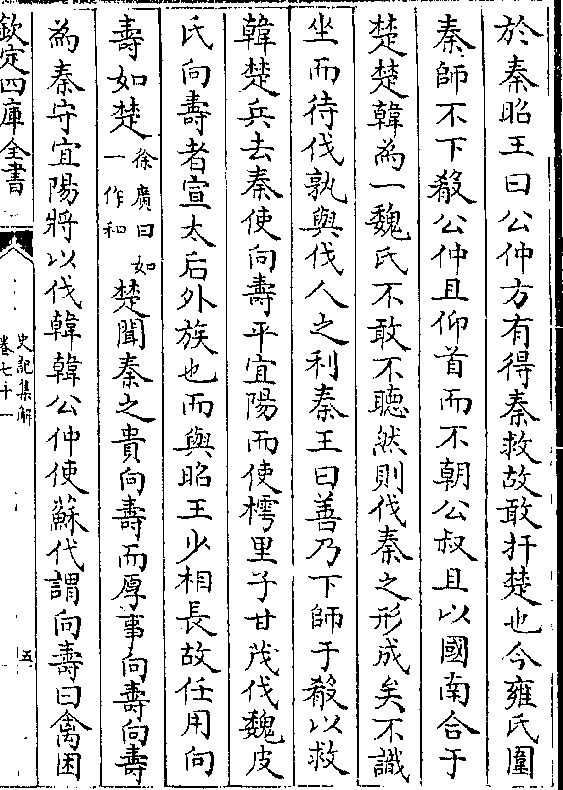 於秦昭王曰公仲方有得秦救故敢扞楚也今雍氏圍
秦師不下殽公仲且仰首而不朝公叔且以國南合于
楚楚韓為一魏氏不敢不聽然則伐秦之形成矣不識
坐而待伐孰與伐人之利秦王曰善乃下師于殽以救
韓楚兵去秦使向壽平宜陽而使樗里子甘茂伐魏皮
氏向壽者宣太后外族也而與昭王少相長故任用向
壽如楚徐廣曰如一作和楚聞秦之貴向壽而厚事向壽向壽
為秦守宜陽將以伐韓韓公仲使蘇代謂向壽曰禽困
欽定四庫全書
史記集解
卷七十一
五